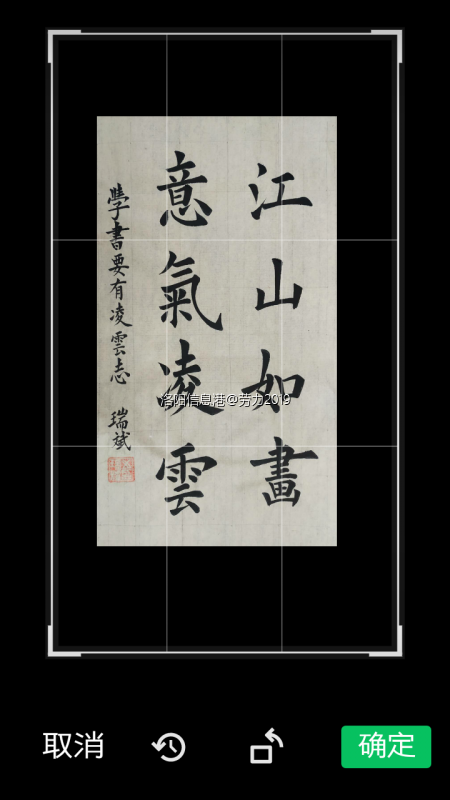 江山如畫
意氣凌雲
學書要有凌雲志 瑞斌
洛阳信息港@劳力2019
取消
确定